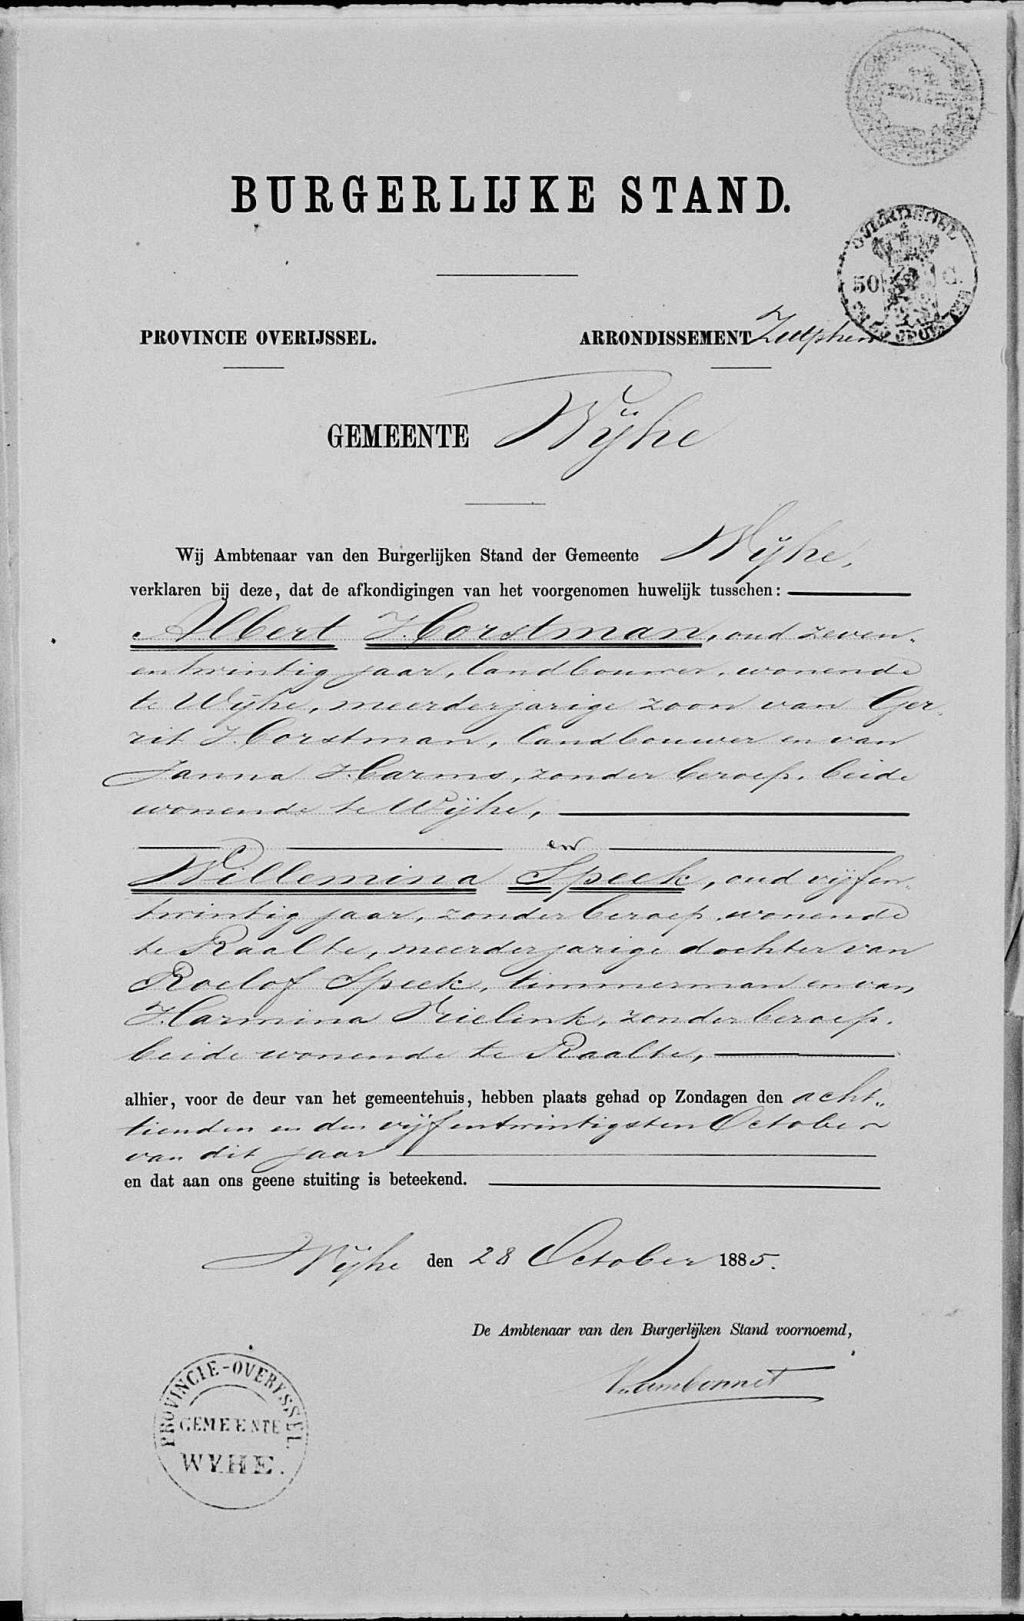 BURGERLIJKE STAND.
OVERIJSSEL
50 C.
PROVINCIE OVERIJSSEL.
ARRONDISSEMENT Zutphen
GEMEENTE Wijhe
Wij Ambtenaar van den Burgerlijken Stand der Gemeente Wijhe,
verklaren bij deze, dat de afkondigingen van het voorgenomen huwelijk tusschen:
Albert Horstman, oud zeven-
entwintig jaar, landbouwer, wonende
te Wijhe, meerderjarige zoon van Ger
rit Horstman, landbouwer en van
Janna Harms, zonder beroep, beide
wonende te Wijhe,
en
Willemina Speek, oud vijfen
twintig jaar, zonder beroep, wonende
te Raalte, meerderjarige dochter van
Roelof Speek, timmerman en van
Harmina Frielink, zonder beroep,
beide wonende te Raalte,
alhier, voor de deur van het gemeentehuis, hebben plaats gehad op Zondagen den acht-
tienden en den vijfentwintigsten October
van dit jaar
en dat aan ons geene stuiting is beteekend.
Wijhe den 28 October 1885.
De Ambtenaar van den Burgerlijken Stand voornoemd,
PROVINCIE-OVERYSSEL.
GEMEENTE
WYHE.